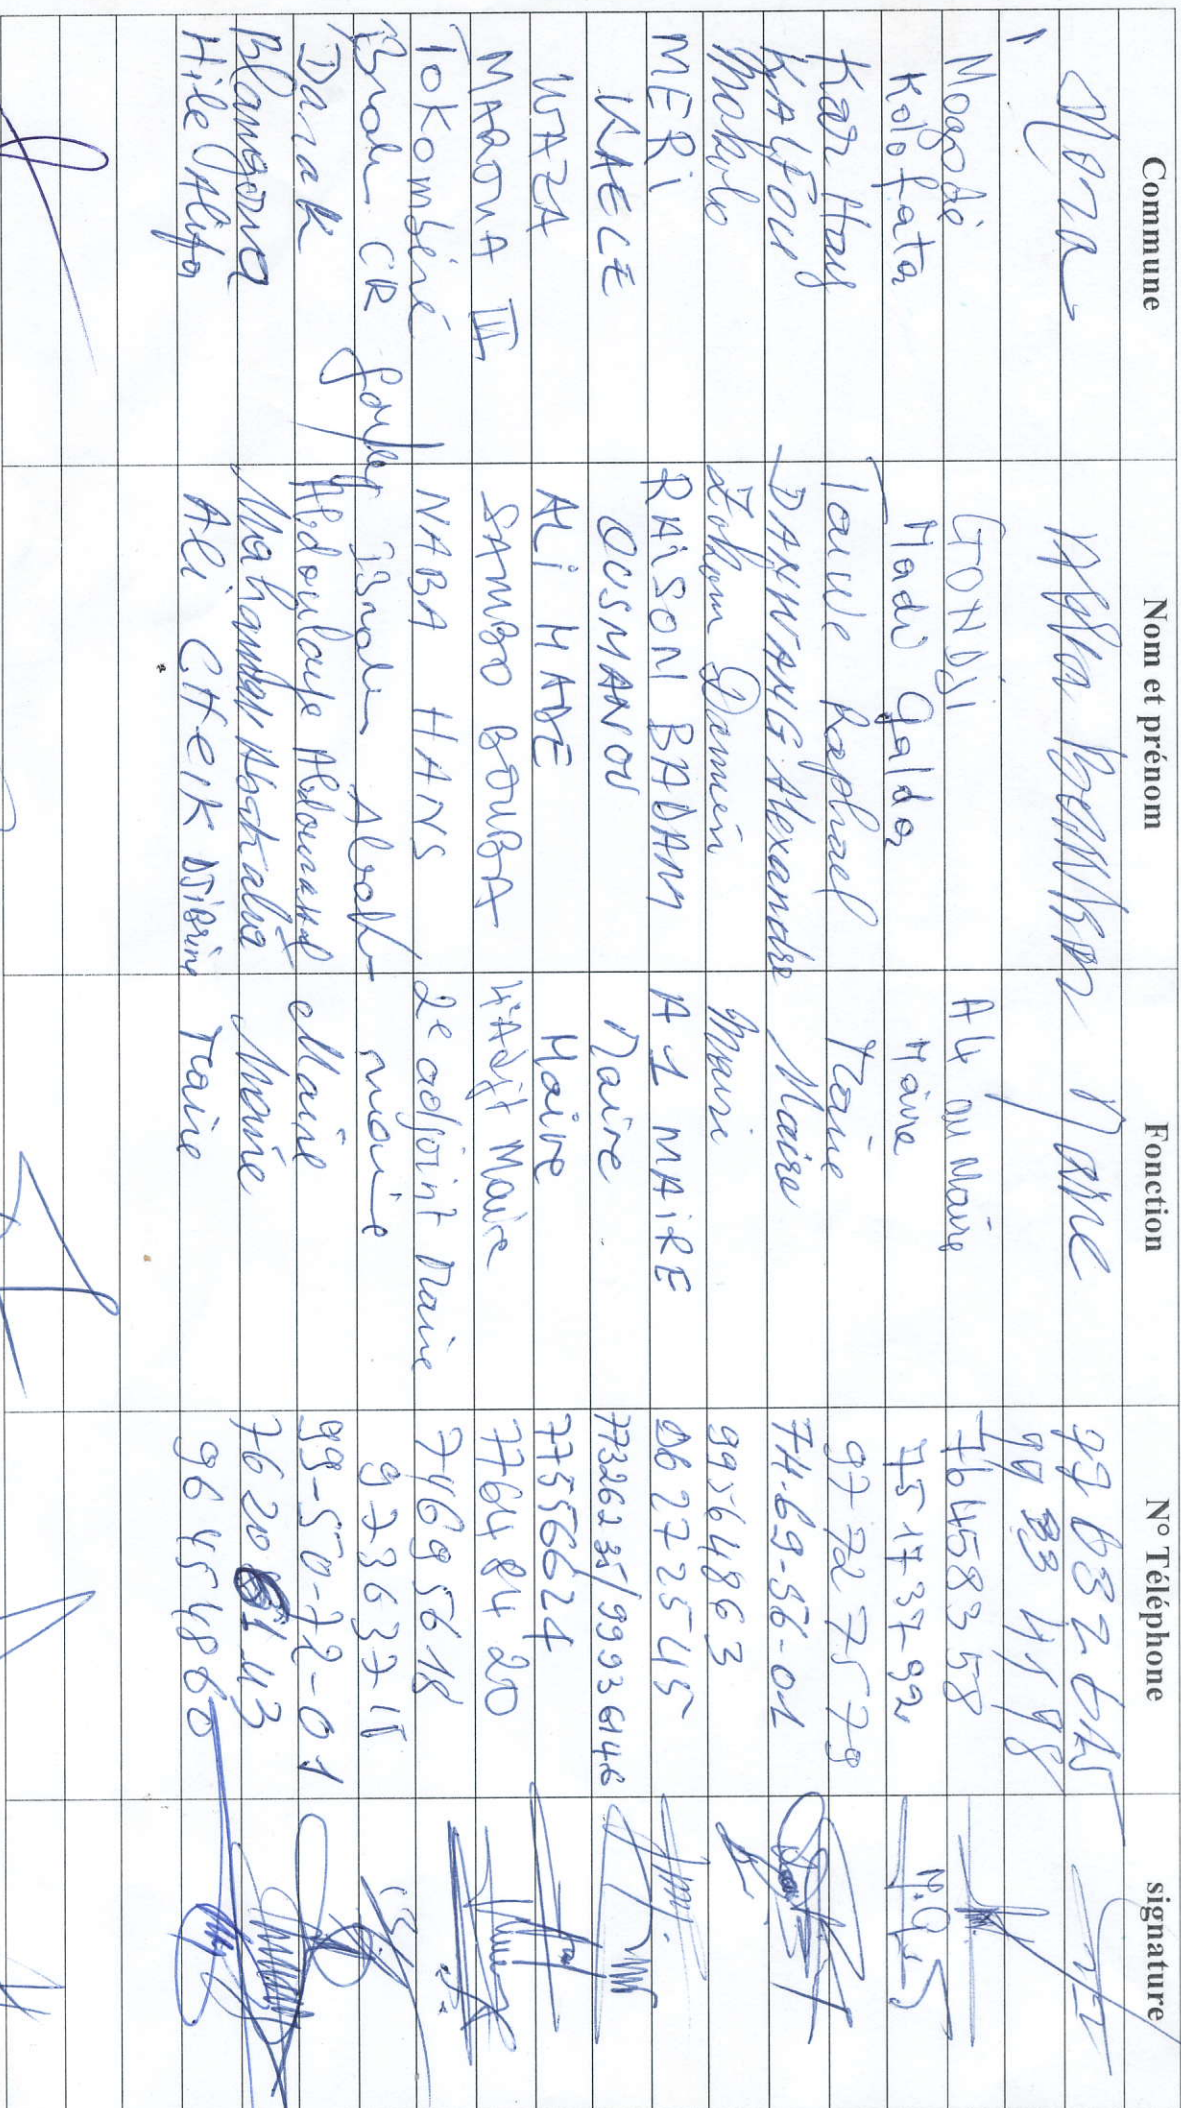 Commune Nom et prénom Fonction N° Téléphone signature
Mora Abba BOUKAR Maire 77 63 26 45
99 83 41 98
Mogodé GONDJI Adj au Maire 76458358
Kolofata Madi Galdo Maire 75 17 37 92
Kar Hay Tawe Raphael Maire 97 72 75 79
KALFOU DANWANG Alexandre Maire 74-69-56-01
Mokolo Zokom Damien 99564863
MERI RAISON BADAM A 1 MAIRE 96 27 25 45
KAELE OUSMANOU Maire 77326235/99936146
WAZA ALI MADE Maire 77556624
MAROUA III SAMBO BOUBA 4e Adjt Maire 7764 84 20
ToKombéré NABA HANS 2e adjoint Maire 74695618
CR maire 97363715
Darak Abdoulaye Maire 99-50-72-01
Blangoua Mahamat Maire 76 20 43
Hile Alifa Ali CHEIK DJIBrine Maire 96 45 48 60